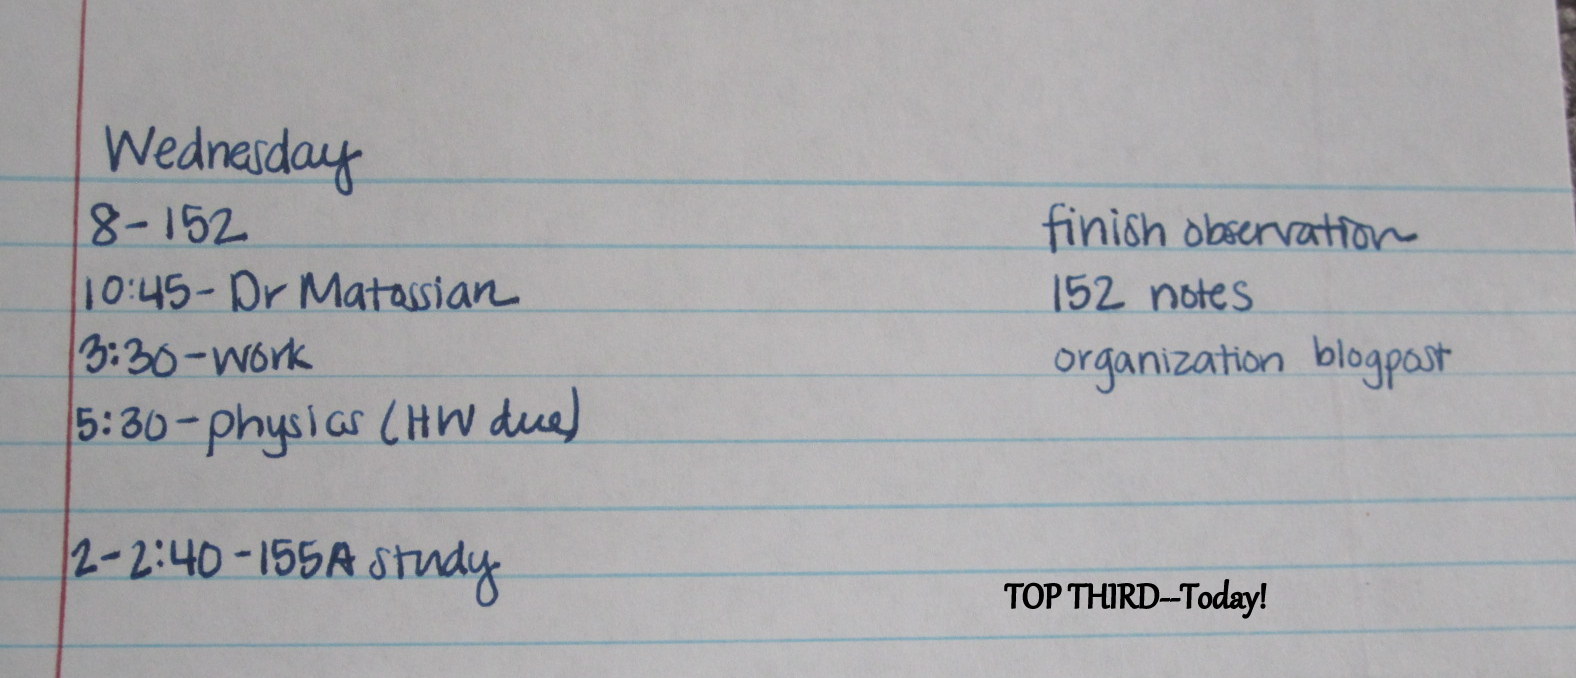 Wednesday
8-152
10:45- Dr Matossian
3:30-work
5:30-physics (HW due)
2-2:40 -155A study
finish observation
152 notes
organization blogpost
TOP THIRD--Today!